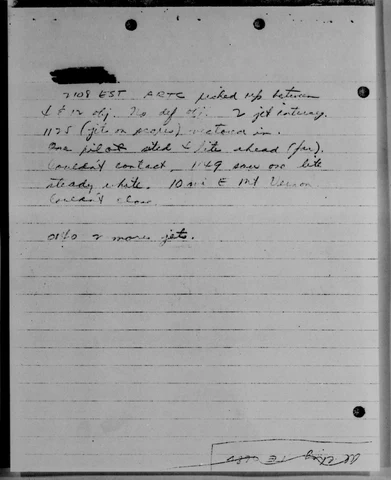 2108 EST ARTC picked up between
4 & 12 obj. No def obj. 2 jet intercep.
1125 (jets on scopes) vectored in.
One pilot sted 4 lite ahead (fu).
Couldn't contact. 1149 saw one lite
steady white. 10 mi E Mt Vernon
Couldn't close.
0140 2 more jets.